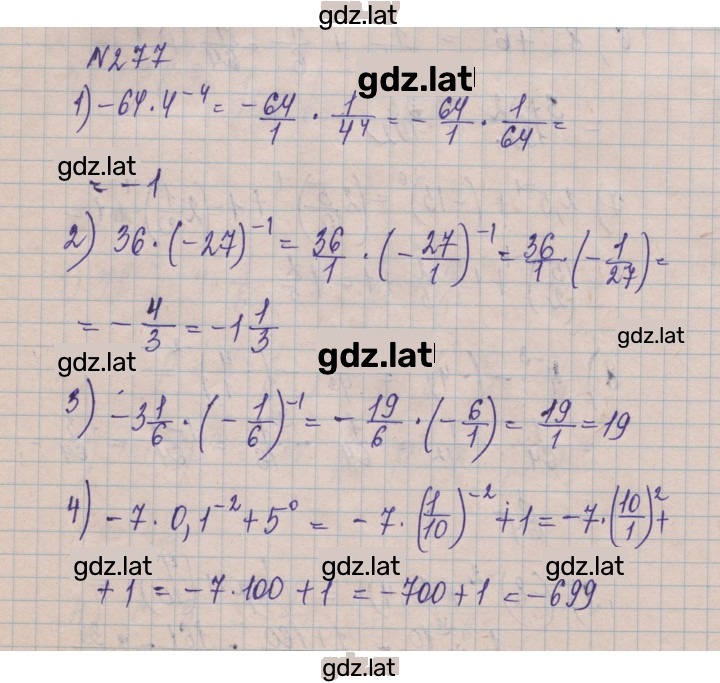 gdz.lat
N277
gdz.lat
1) -64·4^-4 = -64/1 · 1/4^4 = -64/1 · 1/64 =
gdz.lat
= -1
2) 36·(-27)^-1 = 36/1 · (-27/1)^-1 = 36/1 · (-1/27) =
= -4/3 = -1 1/3
gdz.lat
gdz.lat gdz.lat
3) -3 1/6 · (-1/6)^-1 = -19/6 · (-6/1) = 19/1 = 19
4) -7·0,1^-2 + 5^0 = -7·(1/10)^-2 + 1 = -7·(10/1)^2 +
gdz.lat gdz.lat gdz.lat
+1 = -7·100 + 1 = -700 + 1 = -699
gdz.lat